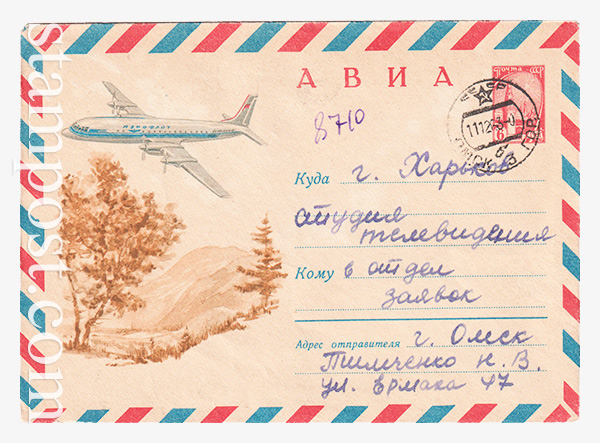 АВИА
ПОЧТА СССР
8710
АЭРОФЛОТ
Куда г. Харьков
студия
телевидения
Кому в отдел
заявок
Адрес отправителя г. Омск
Тимченко Н. В.
ул. Ермака 47
stampost.com